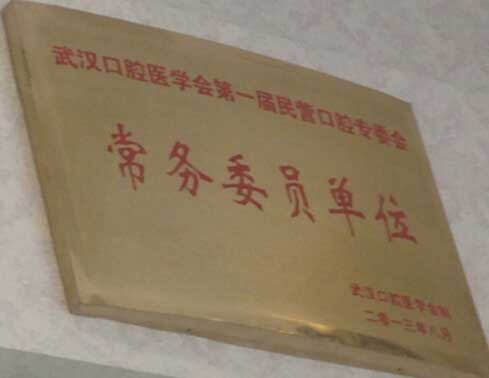 武汉口腔医学会第一届民营口腔专委会
常务委员单位
武汉口腔医学会制
二〇一三年八月